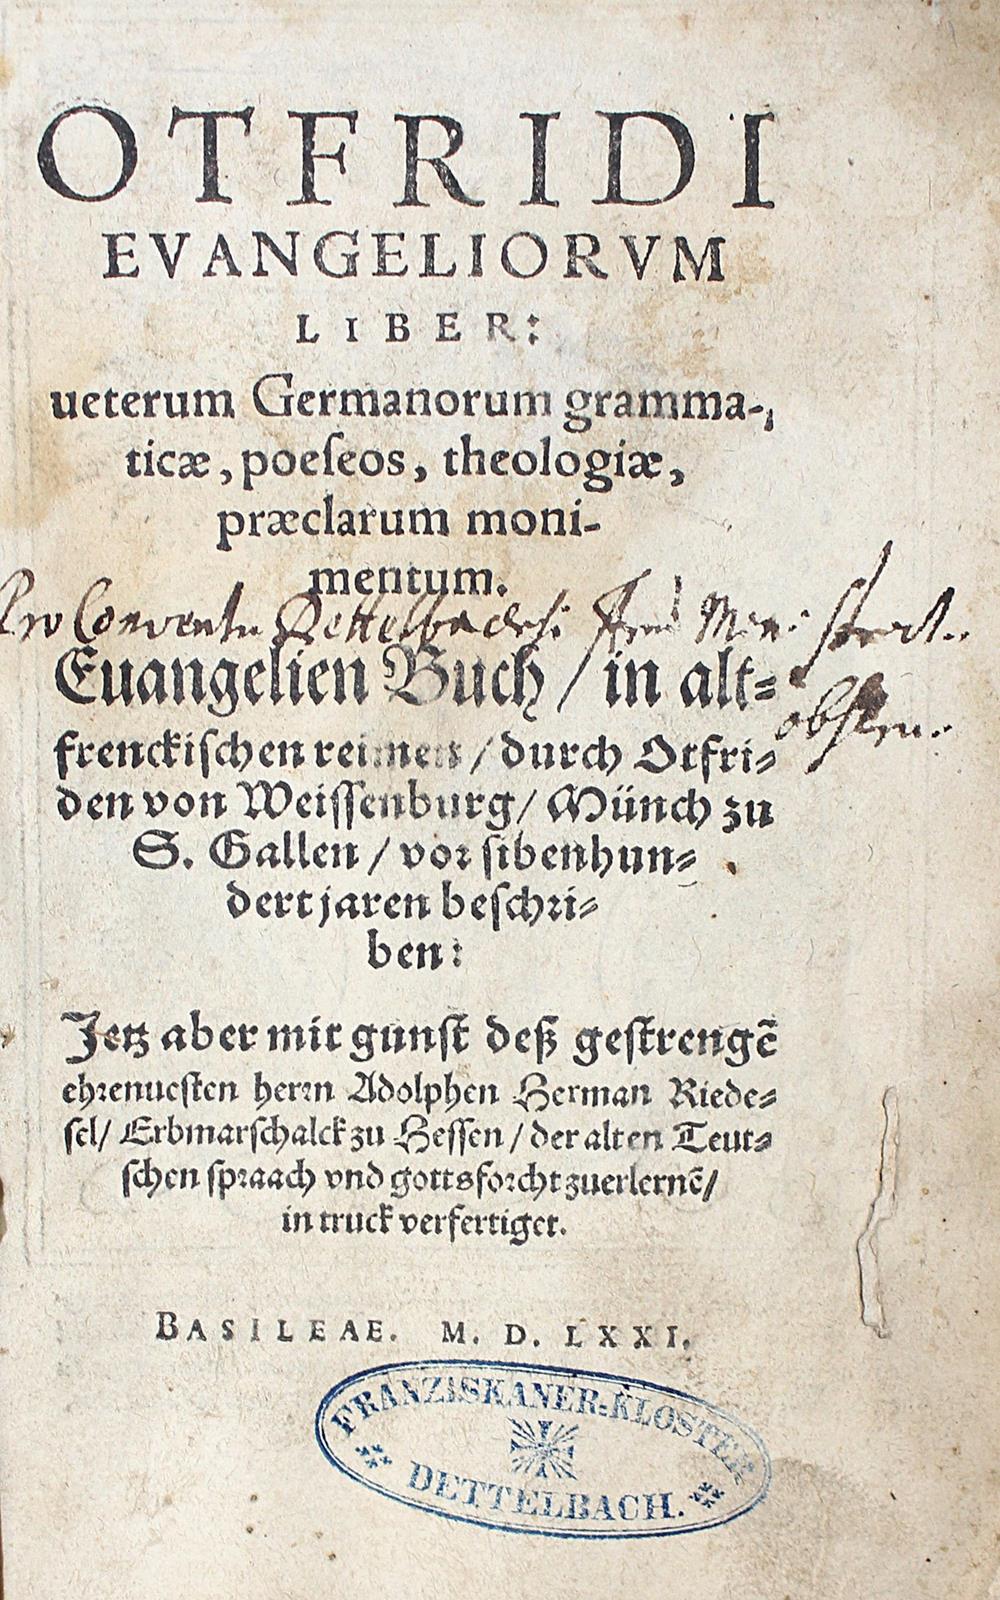 OTFRIDI
EVANGELIORVM
LIBER:
ueterum Germanorum gramma-
ticæ, poeſeos, theologiæ,
præclarum moni-
mentum.
Pro Conventu Dettelbacensi Frm Min: strict..
obſeru..
Euangelien Buch / in alt⸗
frenckiſchen reimen / durch Otfri⸗
den von Weiſſenburg / Münch zu
S. Gallen / vor ſibenhun⸗
dert jaren beſchri⸗
ben:
Jetz aber mit gunſt deß geſtrengē
ehrenueſten herrn Adolphen Herman Riede⸗
ſel / Erbmarſchalck zu Heſſen / der alten Teut⸗
ſchen ſpraach vnd gottsforcht zuerlernē /
in truck verfertiget.
BASILEAE. M. D. LXXI.
FRANZISKANER-KLOSTER
DETTELBACH.